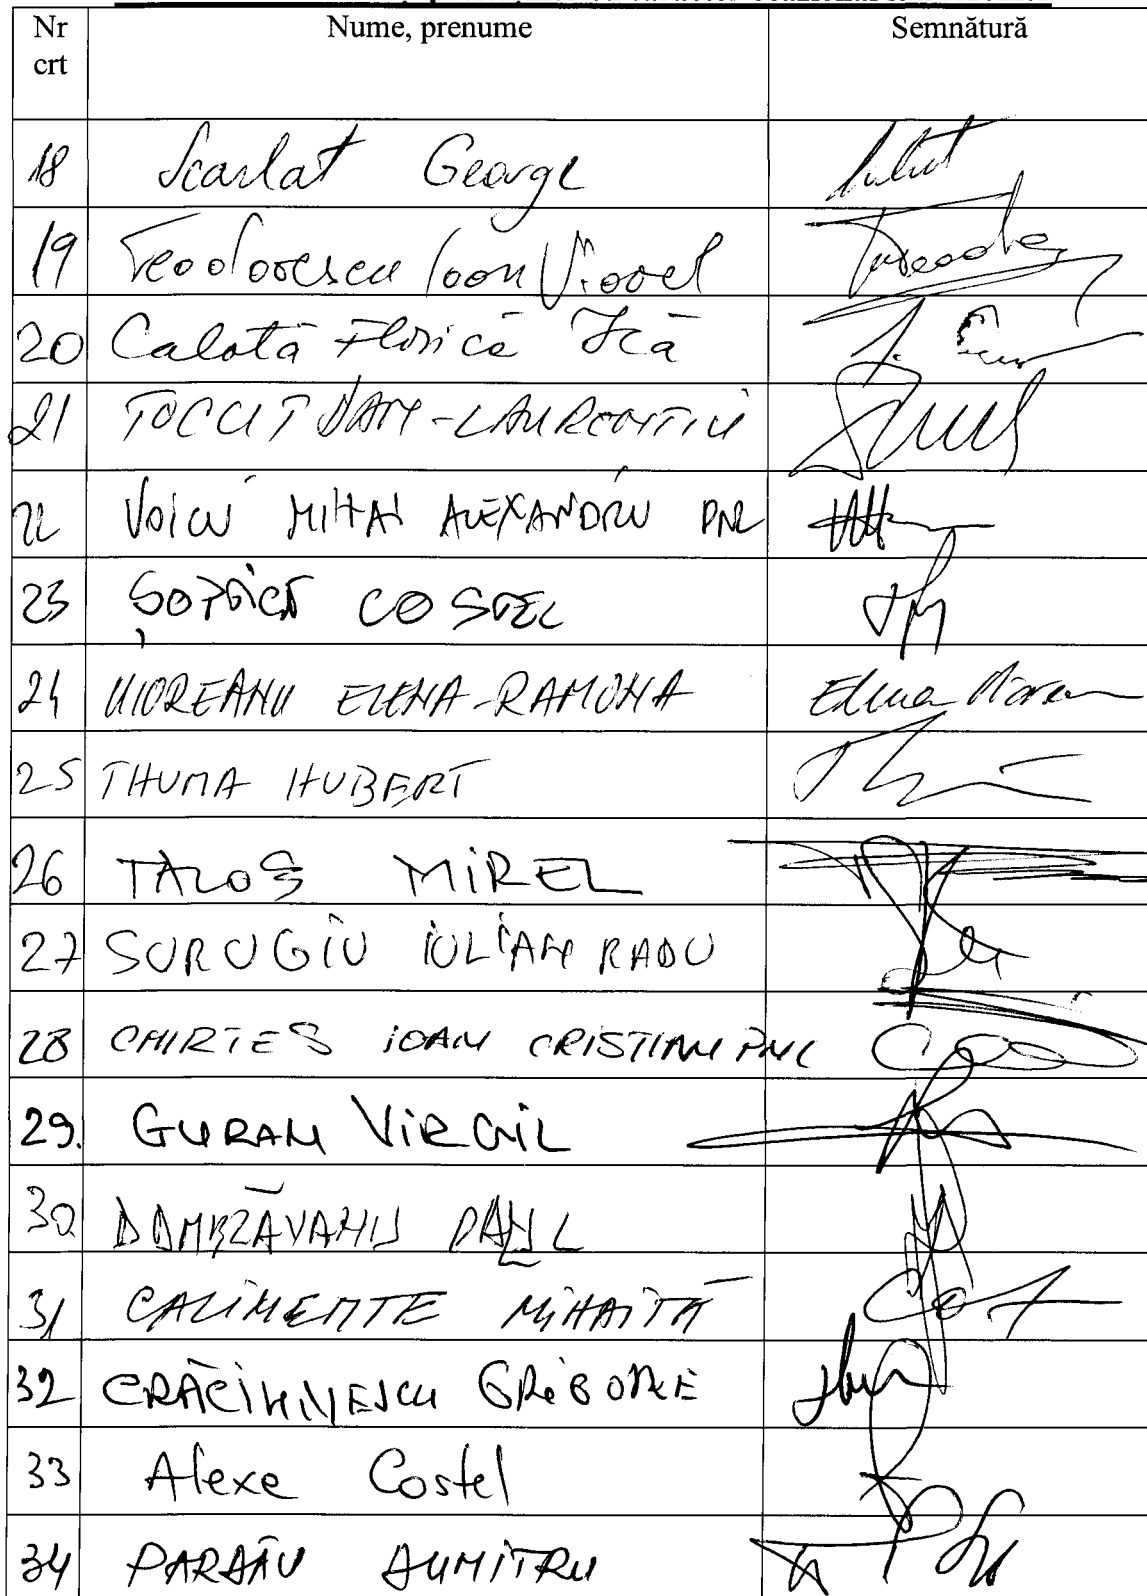 Nr crt Nume, prenume Semnătură
18 Scarlat George
19 Teodorescu Ioan Viorel
20 Calotă Florică Ică
21 TOCUT DAN-LAURENTIU
22 VOICU MIHAI ALEXANDRU PNL
23 ȘOPTICĂ COSTEL
24 UIOREANU ELENA-RAMONA Elena Uiorean
25 THUMA HUBERT
26 TALOȘ MIREL
27 SURUGIU IULIAN RADU
28 CHIRTEȘ IOAN CRISTIAN PNL
29. GURAN VIRGIL
30 DAMBZĂVANU
31 CALIMENTE MIHAITĂ
32 CRĂCIUNESCU GRIGORE
33 Alexe Costel
34 PARDĂU DUMITRU